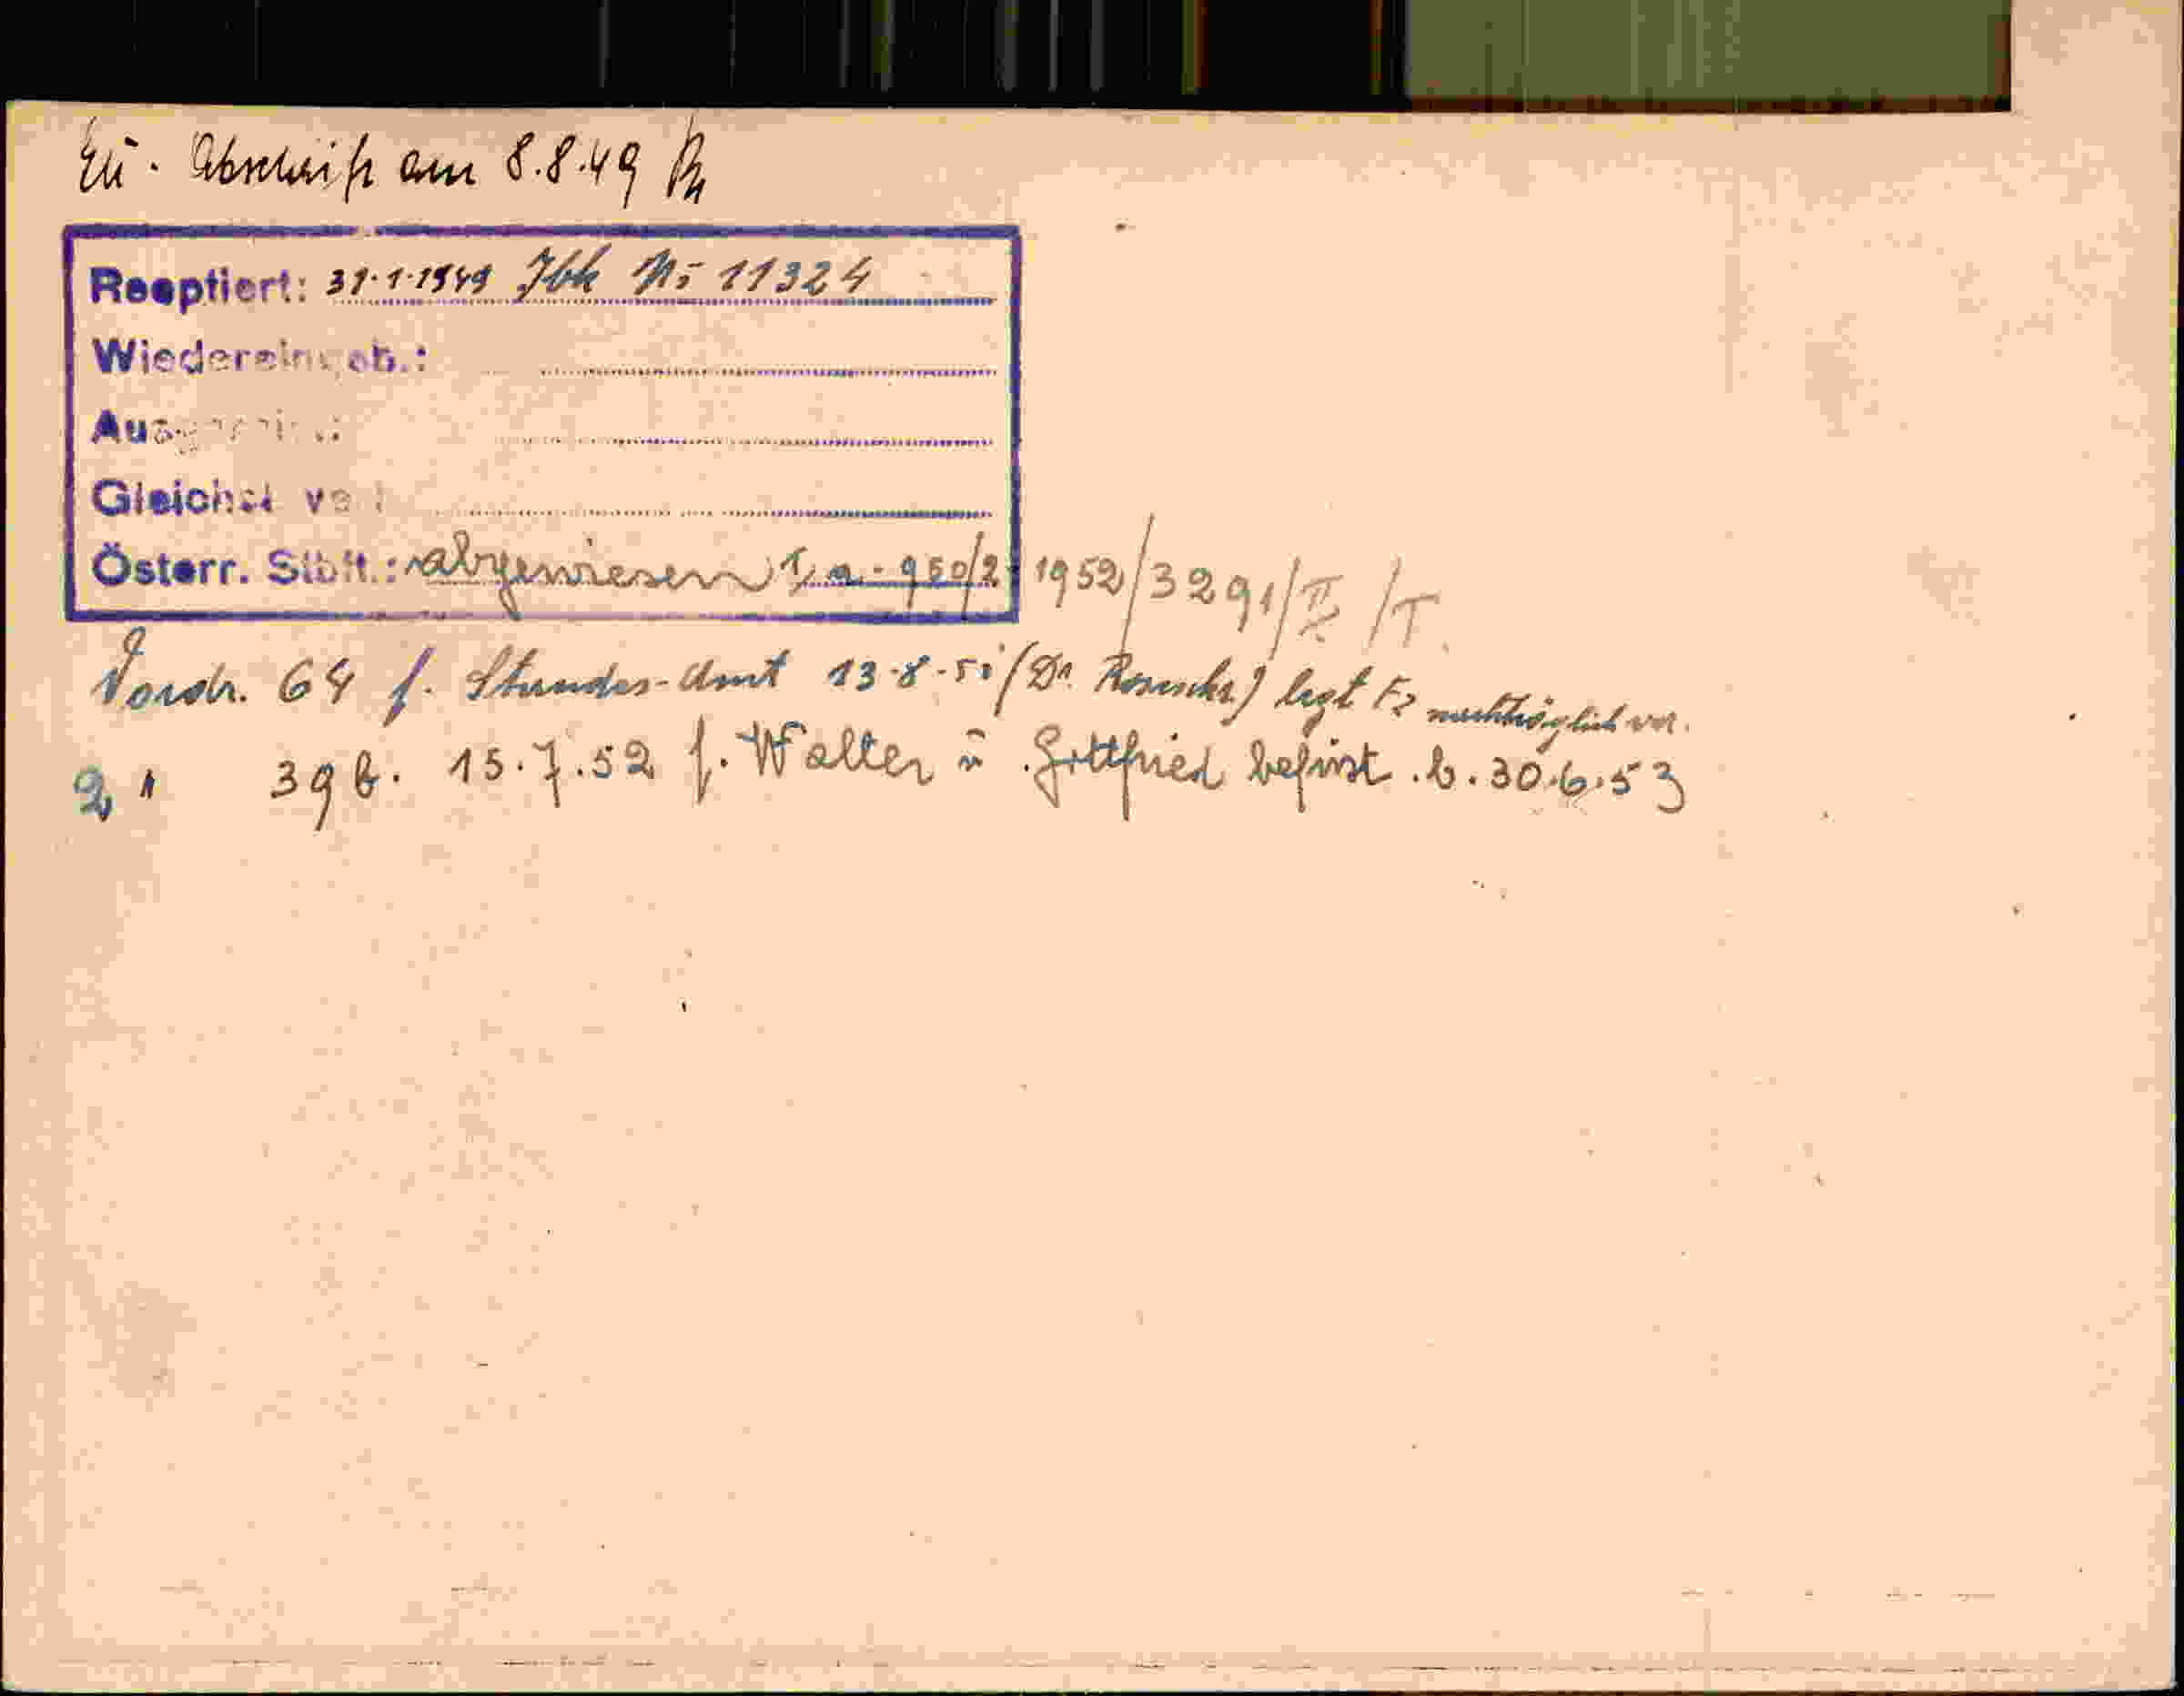 Eü. Abschrift am 8.8.49
Reoptiert: 31.1.1949 Ibk Nr 11324
Wiedereingeb.:
Gleichst
Österr. Stbft.: abgewiesen I a - 950/2 1952/3291/II /T.
Vordr. 64 f. Standes-Amt 13-8-51 (Dr. ) legt F2 nachträglich vor.
2 " 39 b. 15.7.52 f. Walter u. Gottfried befrist. b. 30.6.53